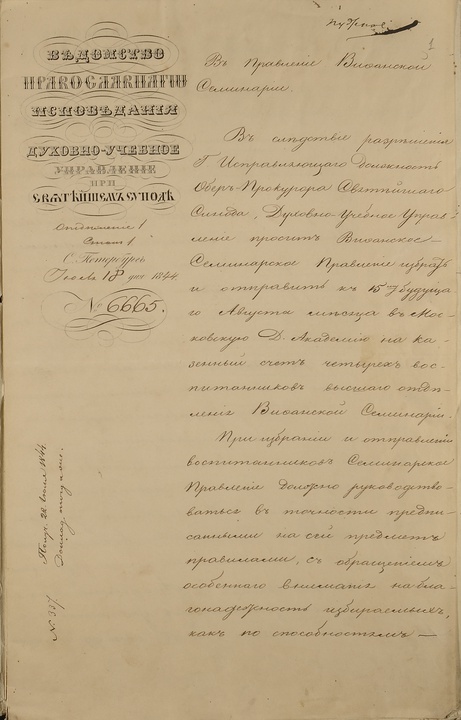 ВѢДОМСТВО
ПРАВОСЛАВНАГО
ИСПОВѢДАНІЯ
ДУХОВНО-УЧЕБНОЕ
УПРАВЛЕНІЕ
ПРИ
СВЯТѢЙШЕМЪ СУНОДѢ
Отдѣленіе 1
Столъ 1
С. Петербургъ
Іюля 18 дня 1844.
№ 6665.
Получ. 28 Іюля 1844
№ 337
Въ Правленіе Виѳанской
Семинаріи
Въ слѣдствіе разрѣшенія
Г. Исправляющаго должность
Оберъ-Прокурора Святѣйшаго
Синода, Духовно-Учебное Управ-
леніе проситъ Виѳанское
Семинарское Правленіе избрать
и отправить къ 15 будуща
го Августа мѣсяца въ Мос-
ковскую Д. Академію на ка-
зенный счетъ четырехъ вос-
питанниковъ высшаго отдѣ-
ленія Виѳанской Семинаріи.
При избраніи и отправленіи
воспитанниковъ Семинарское
Правленіе должно руководство-
ваться въ точности предпи-
санными на сей предметъ
правилами, съ обращеніемъ
особеннаго вниманія на бла-
гонадежность избираемыхъ,
какъ по способностямъ —